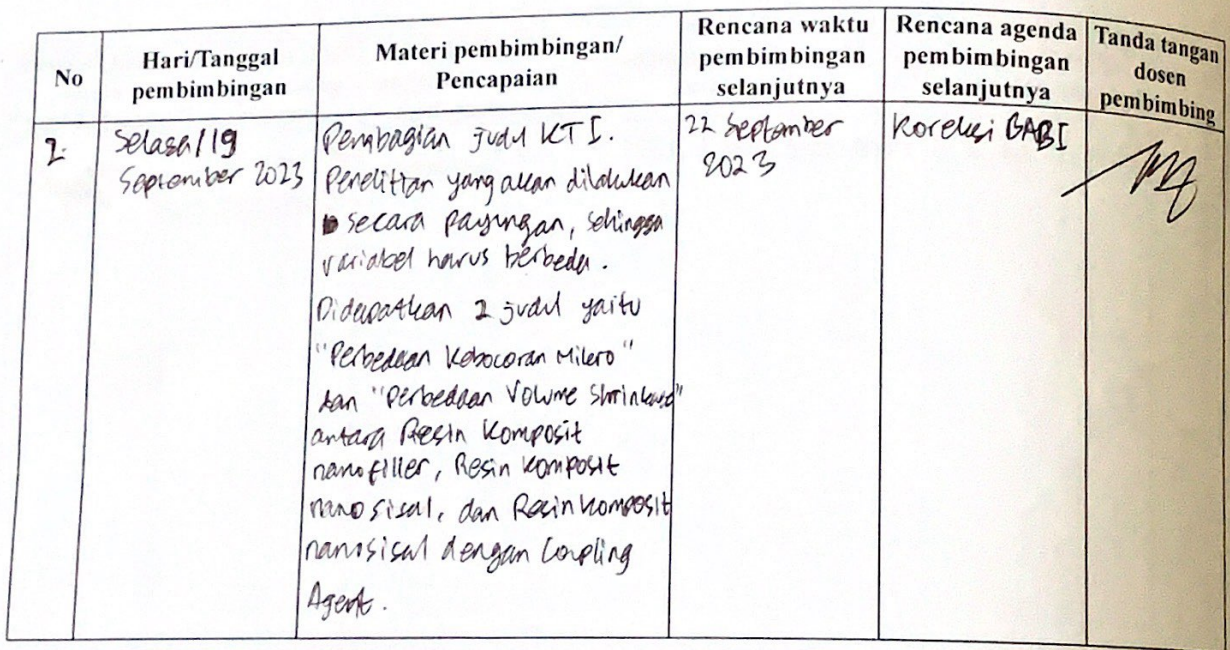 No
Hari/Tanggal
pembimbingan
Materi pembimbingan/
Pencapaian
Rencana waktu
pembimbingan
selanjutnya
Rencana agenda
pembimbingan
selanjutnya
Tanda tangan
dosen
pembimbing
2.
Selasa/19
September 2023
Pembagian judul KTI.
Penelitian yang akan dilakukan
secara payungan, sehingga
variabel harus berbeda.
Didapatkan 2 judul yaitu
"Perbedaan Kebocoran Mikro"
dan "Perbedaan Volume Shrinkage"
antara Resin Komposit
nanofiller, Resin komposit
nanosisal, dan Resin komposit
nanosisal dengan Coupling
Agent.
22 September
2023
Koreksi BAB I